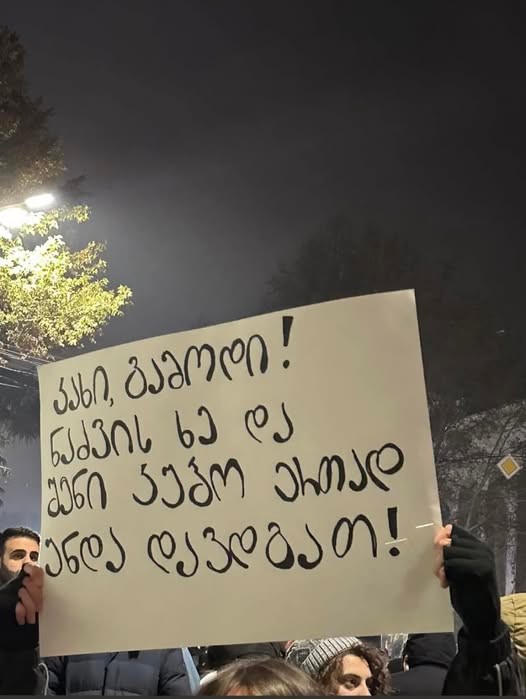 კახი, გამოდი!
ნაძვის ხე და
შენი კუბო ერთად
უნდა დავდგათ!